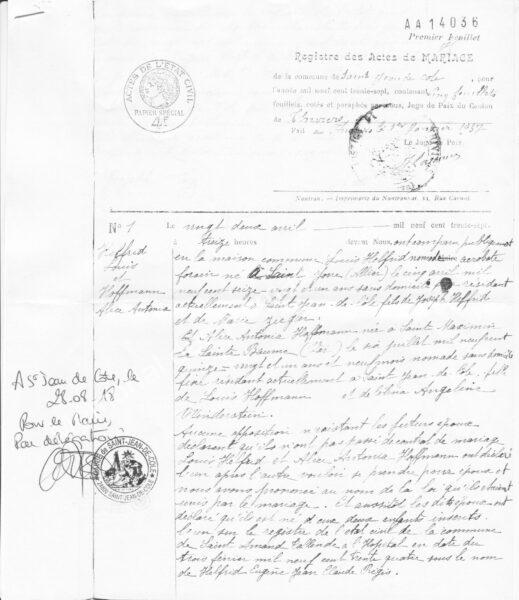 AA 14036
Premier feuillet
Registre des Actes de MARIAGE
de la commune de Saint Jean de Cole, pour
l'année mil neuf cent trente-sept, contenant cinq feuillets
feuillets, cotés et paraphés par nous, Juge de Paix du Canton
de Thiviers
Fait 1937
Le Juge de Paix,
ACTES DE L'ÉTAT CIVIL
PAPIER SPÉCIAL
Nontron. — Imprimerie du Nontronnais, 11, Rue Carnot
N° 1
Helfrid
Louis
et
Hoffmann
Alice Antonia
Le vingt deux avril mil neuf cent trente-sept.
à seize heures devant Nous, ont comparu publiquement
en la maison commune Louis Helfrid nomade acrobate
forain né à Saint Yorre (Allier) le cinq avril mil
neuf cent seize vingt et un ans sans domicile résidant
actuellement à Saint Jean de Côle fils de Joseph Helfrid
et de Marie
Et Alice Antonia Hoffmann née à Saint Maximin
la Sainte Baume (Var) le juillet mil neuf cent
quinze vingt et un ans et neuf mois nomade sans domicile
fixe résidant actuellement à Saint Jean de Côle, fille
de Louis Hoffmann et de Angeline
Aucune opposition n'existant les futurs époux
déclarent qu'ils n'ont pas passé de contrat de mariage
Louis Helfrid et Alice Antonia Hoffmann ont déclaré
l'un après l'autre vouloir se prendre pour époux et
nous avons prononcé au nom de la loi qu'ils étaient
unis par le mariage. Et aussitôt les dits époux ont
déclaré qu'ils est né d'eux deux enfants inscrits
l'un sur le registre de l'état civil de la commune
de Saint Amand à l'Hôpital en date du
trois février mil neuf cent trente quatre sous le nom
de Helfrid Eugène Jean Claude Régis.
A St Jean de Cole, le
28-08-18
Pour le Maire,
Par délégation,
MAIRIE de SAINT-JEAN-DE-COLE